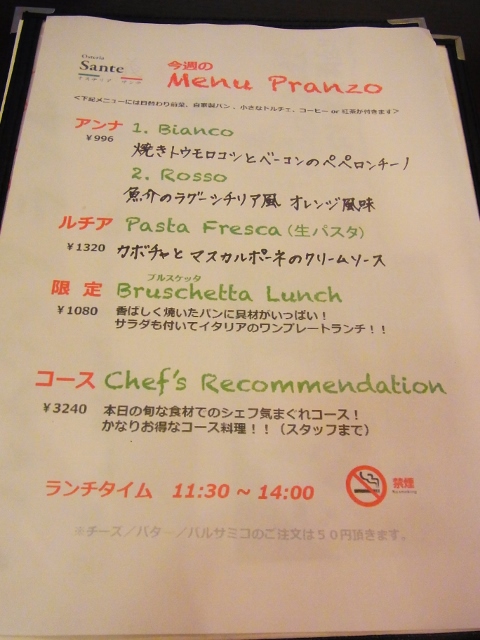 Osteria
Sante
オステリア サンテ
今週の
Menu Pranzo
<下記メニューには日替わり前菜、自家製パン、小さなドルチェ、コーヒー or 紅茶が付きます>
アンナ 1. Bianco
¥996
焼きトウモロコシとベーコンのペペロンチーノ
2. Rosso
魚介のラグーシチリア風 オレンジ風味
ルチア Pasta Fresca (生パスタ)
¥1320 カボチャと マスカルポーネのクリームソース
ブルスケッタ
限 定 Bruschetta Lunch
¥1080 香ばしく焼いたパンに具材がいっぱい！
サラダも付いてイタリアのワンプレートランチ！！
コース Chef's Recommendation
¥3240 本日の旬な食材でのシェフ気まぐれコース！
かなりお得なコース料理！！（スタッフまで）
ランチタイム 11:30 ~ 14:00
禁煙
※チーズ／バター／バルサミコのご注文は５０円頂きます。